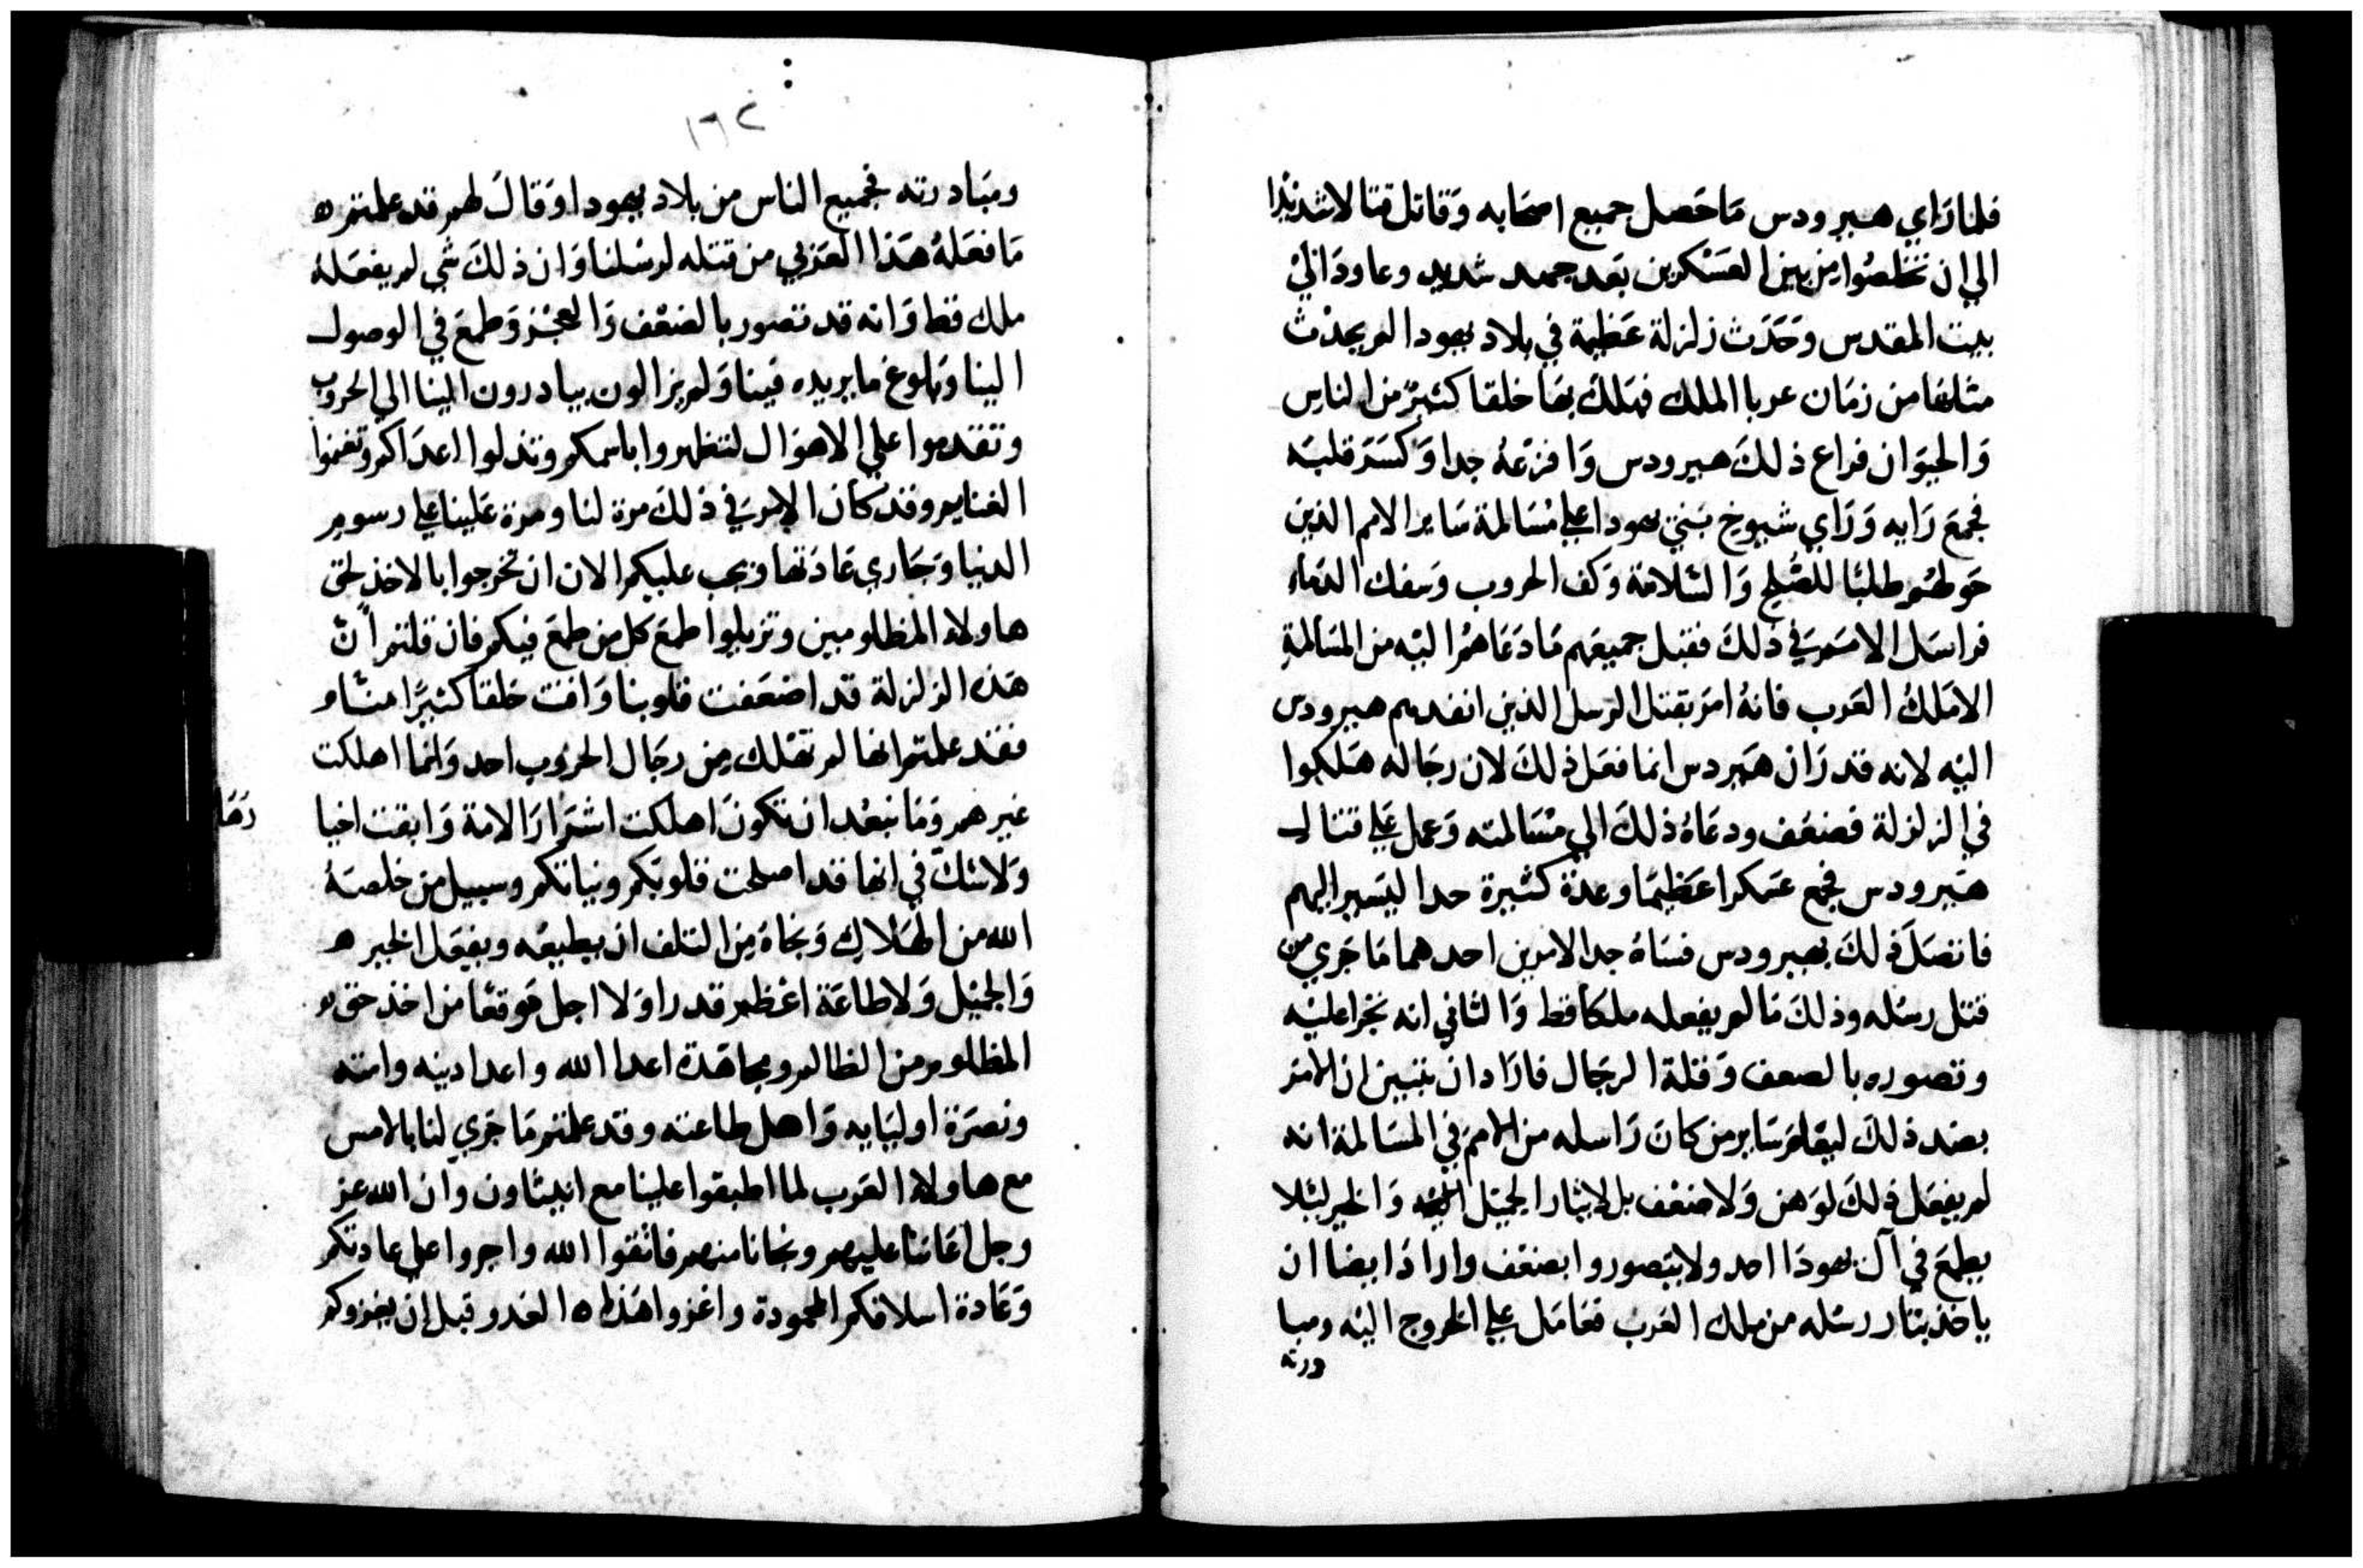 فلما رَاي هيرودس مَا حَصل جميع اصحَابه وَقاتل قتالا شديدًا
الي ان تخلصُوا من بين العَسْكرين بَعد جهد شديد وعاودَ الي
بيت المقدس وحَدَث زلزلة عَظيمة في بلاد يهودا لم يحدُث
مثلها من زمَان عربا الملك فهَلكَ بهَا خلقا كثيرٌ من الناس
وَالحيوَان فراع ذلكَ هيرودس وَافزعهُ جدا وَكسَرَ قلبَه
فجمعَ رَايه وَرَاي شيوخ بَني يهودا علي مُسَالمة سَاير الامم الذين
حَولهُم طلبًا للصُلح وَالسَّلامة وَكف الحروب وَسفك الدمَاء
فراسَل الامَم في ذلكَ فقبل جميعَهم مَا دَعَاهمُ اليْه من المسَالمةِ
الا مَلكُ العَرب فانهُ امَر بقتل الرسل الذين انفدهم هيرودس
اليْه لانه قدرَ ان هَيردس انما فعَل ذلكَ لان رجَاله هَلكوا
في الزلزلة فضعُف ودعَاهُ ذلكَ الي مُسَالمته وَعمل عَلي قتال
هَيرودس فجمع عَسكرا عَظيمًا وعدّة كثيرة جدا ليَسير اليهم
فاتصَلَ ذلكَ بهيرودس فسَاهُ جدا لامرين احدهما مَا جَري من
قتل رسُله وذلكَ مَا لم يفعله ملكا قط وَالثاني انه تجرا عليْه
وتصوره بالصعف وَقلة الرجَال فارَاد ان يتبين ان الامر
بضد ذلكَ ليعْلمَ سَاير من كانَ رَاسله من الامم في المسَالمة انه
لم يفعَل ذلكَ لوَهن وَلا ضعْف بل لايثار الجميَل وَالخير ليَلا
يطمَع في آل يهودَا احد ولا يتصوروا بضعْف وارادَ ايضا ان
ياخذ بثار رسُله من ملك العَرب فعَامَل علي الخروج اليْه ومبا
درته
١٦٢
ومبَادرته فجميع الناس من بلاد يهودا وَقالَ لهم قد علمتم ه
مَا فعَلهُ هَذا العَربي من قتله لرسُلنا وَان ذلكَ شي لم يفعَلهُ
ملك قط وَانه قد تصور بالضعْف وَالعجْز وَطمعَ في الوصول
الينا وَبلوغ ما يريده فينا وَلم يزالون يبادرون الينا الي الحروب
وتقدموا علي الاهوَال لتظهروا باسكم وتذلوا اعدَاكم وتغنموا
الغنايم وقد كان الامرَ في ذلكَ مرة لنا ومرة عَلينا علي رسوم
الدنيا وَجَاري عَادَتها وَيجب عليكم الان ان تخرجوا بالاخذ لحق
هاولاء المظلومين وتزيلوا طمعَ كل من طمعَ فيكم فان قلتم انّ
هَذه الزلزلة قد اضعَفت قلوبنا وَافنت خلقا كثيرًا منّا و
فقد علمتم انها لم تهْلك من رجَال الحرُوب احد وَانما اهلكت
غيرهم وَمَا نبعُد ان تكونَ اهلكت اشرَارَ الامة وَابقت اخيا
رَهَا
وَلا شكَّ في انها قد اصلحت قلوبَكم ونياتكم وسبيل من خلصَهُ
الله من الهَلاكِ وَنجاهُ من التلف ان يطيعُه ويفعَل الخير ه
وَالجميْل وَلا طاعَة اعْظم قدرا وَلا اجل مَوقعًا من اخذ حق
المظلوم من الظالم ومجاهَدة اعدا الله واعدا دينه وامته
ونصرَة اوليَايه وَاهل طاعته وقد علمتم مَا جَري لنا بالامس
مع هاولاء العَرب لما اطبقوا علينا مع انيثاون وان الله عز
وجل اعَاننا عليهم ونجانا منهم فاتقوا الله واجروا علي عادتكم
وَعَادة اسلافكم المحمودة واغزوا هَذا ه العَدو قبل ان يغزوكم